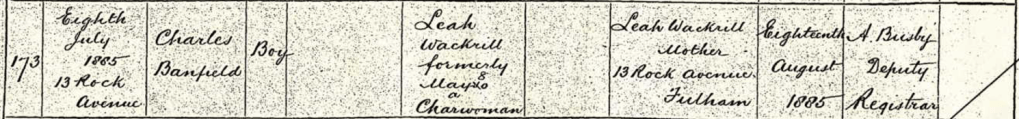 173
Eighth
July
1885
13 Rock
Avenue
Charles
Banfield
Boy
Leah
Wackrill
formerly
a
Charwoman
Leah Wackrill
Mother
13 Rock Avenue
Fulham
Eighteenth
August
1885
A Busby
Deputy
Registrar